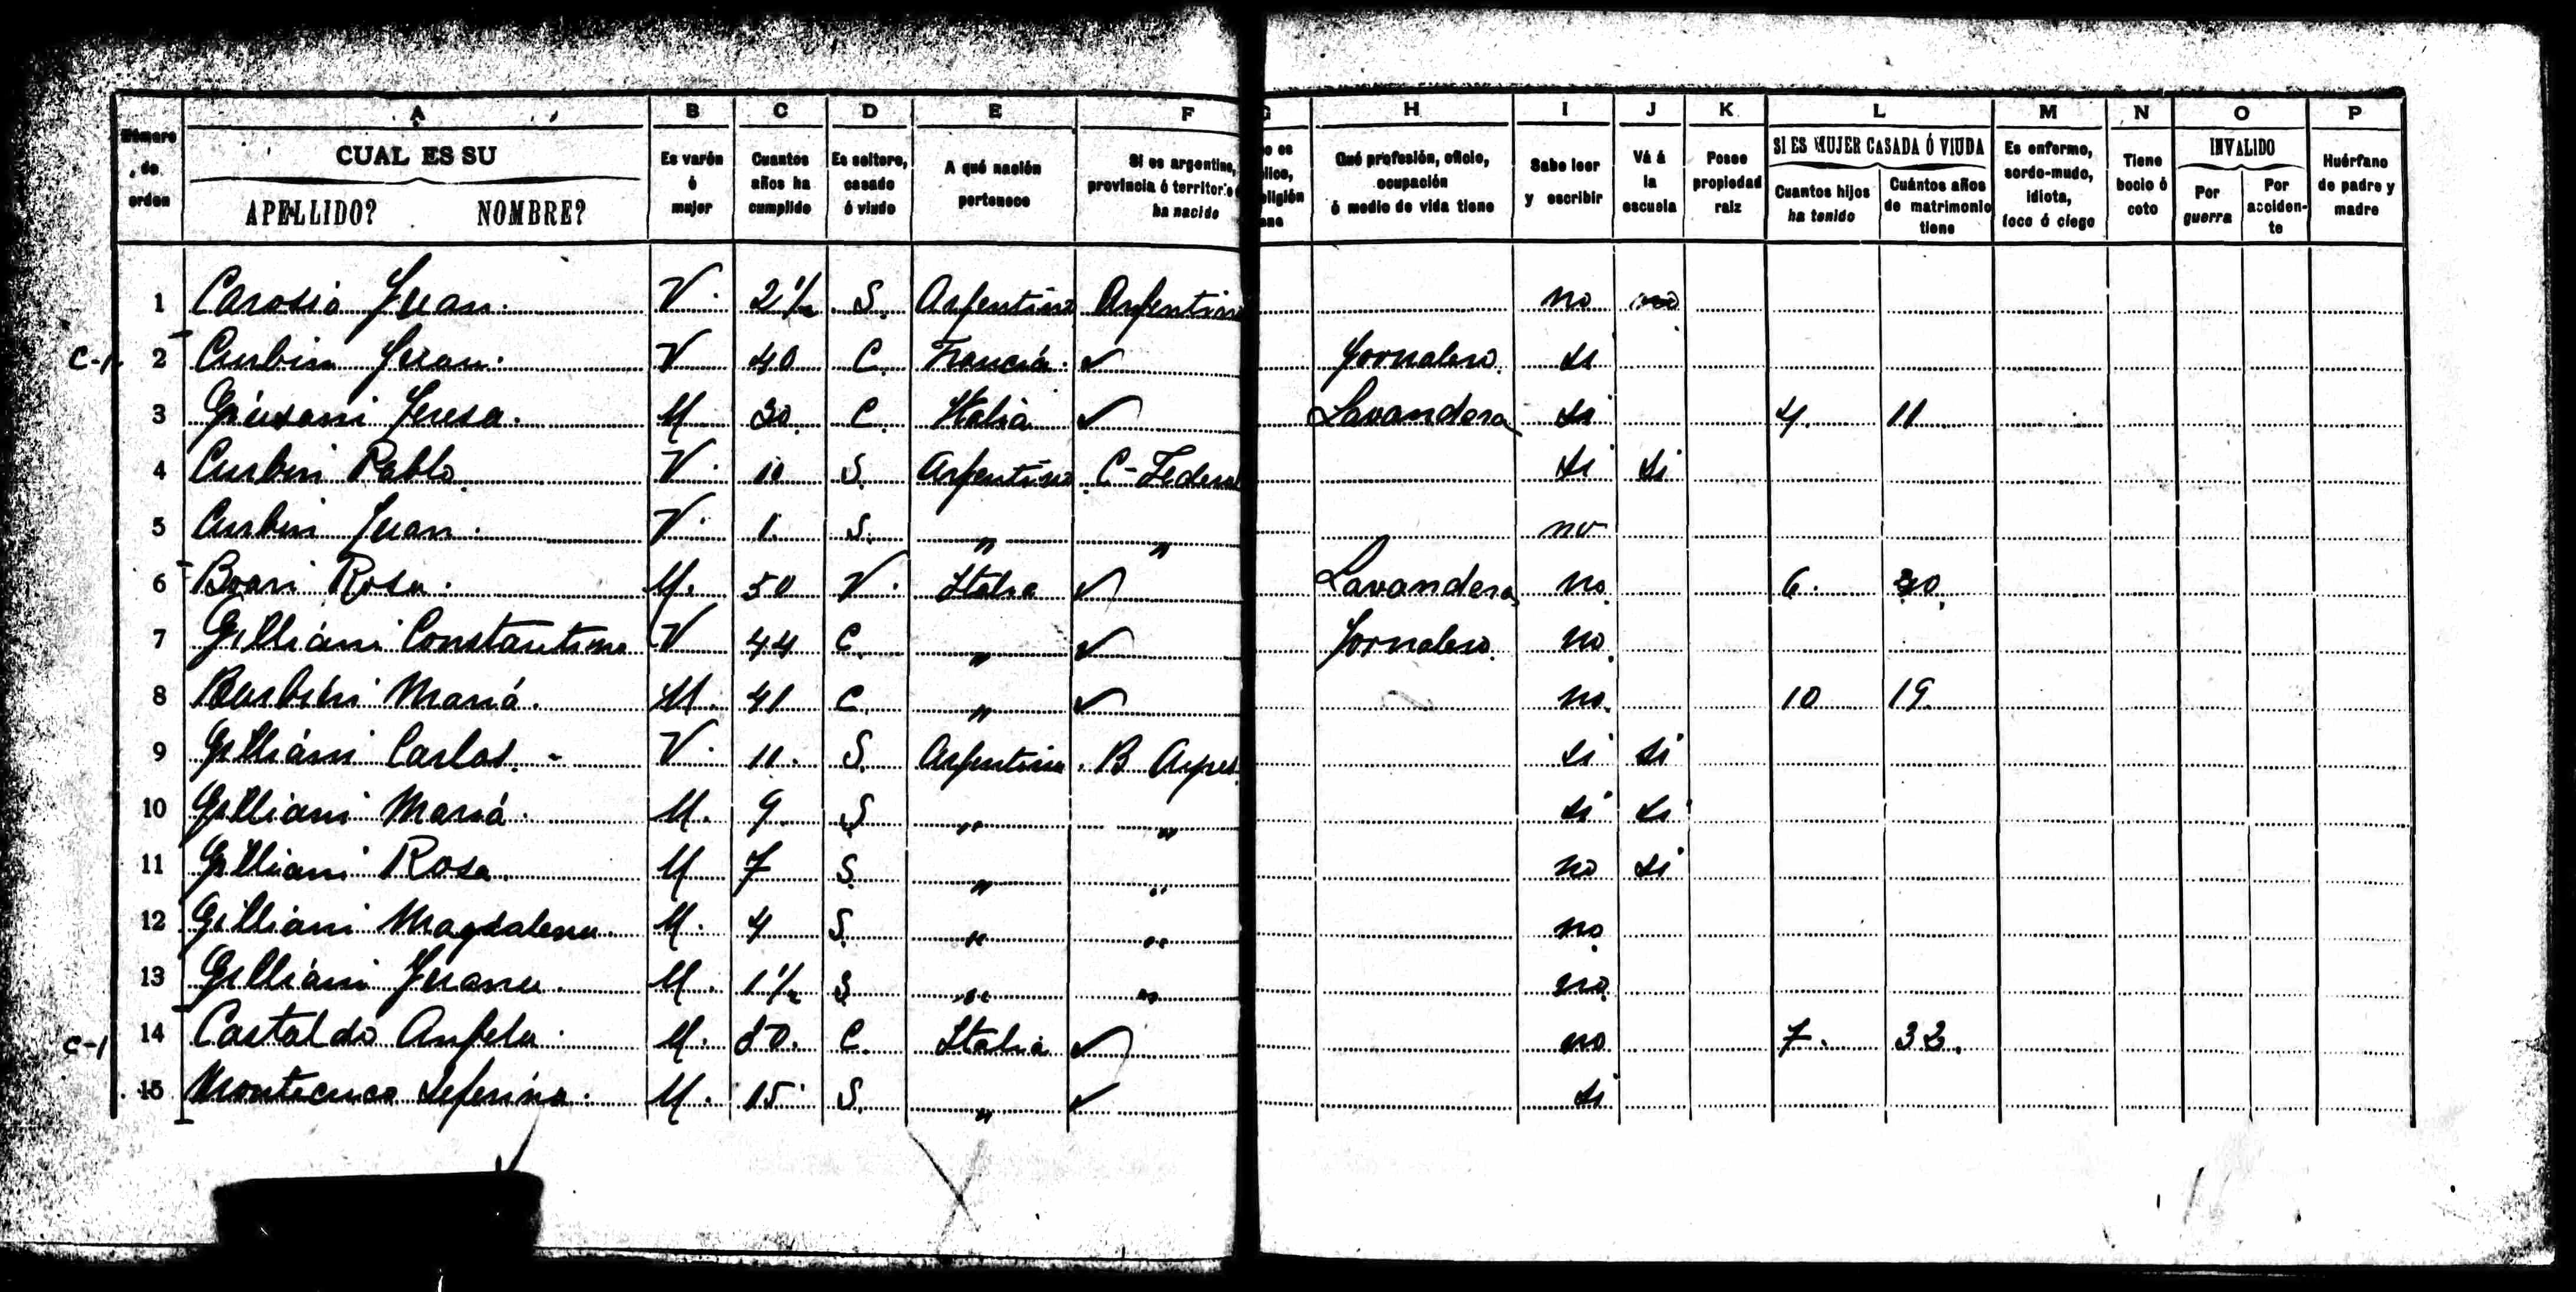 A B C D E F G H I J K L M N O P
Número de orden CUAL ES SU APELLIDO? NOMBRE? Es varón ó mujer Cuantos años ha cumplido Es soltero, casado ó viudo A qué nación pertenece Si es argentino, provincia ó territorio ha nacido Qué profesión, oficio, ocupación ó medio de vida tiene Sabe leer y escribir Vá á la escuela Posee propiedad raiz SI ES MUJER CASADA Ó VIUDA Cuantos hijos ha tenido Cuántos años de matrimonio tiene Es enfermo, sordo-mudo, idiota, loco ó ciego Tiene bocio ó coto INVALIDO Por guerra Por acciden-te Huérfano de padre y madre
1 Carosio Juan. V. 2 1/2 S. Argentina Argentina no
C-1 2 Curbin Juan. V 40 C. Francia. ✓ Jornalero. si
3 Teresa. M. 30. C. Italia ✓ Lavandera si 4. 11
4 Curbin Pablo. V. 10 S. Argentina C-Federal si si
5 Curbin Juan. V. 1. S. " " no
6 Boari Rosa. M. 50 V. Italia ✓ Lavandera no. 6. 30.
7 Gilliáni Constantino V 44 C. " ✓ Jornalero. no.
8 Burbini María. M. 41 C. " ✓ no. 10 19.
9 Gilliáni Carlos. - V. 11. S. Argentina. B Ayres si si
10 Gilliani María. M. 9. S " " si si
11 Gilliani Rosa. M 7 S. " " no si
12 Gilliáni Magdalena. M. 4 S. " " no.
13 Gilliáni Juana. M. 1 1/2 S " " no.
C-1 14 Castaldo Angela. M. 50. C. Italia ✓ no 7. 32.
15 Montecuco Seferina. M. 15 S. " ✓ si